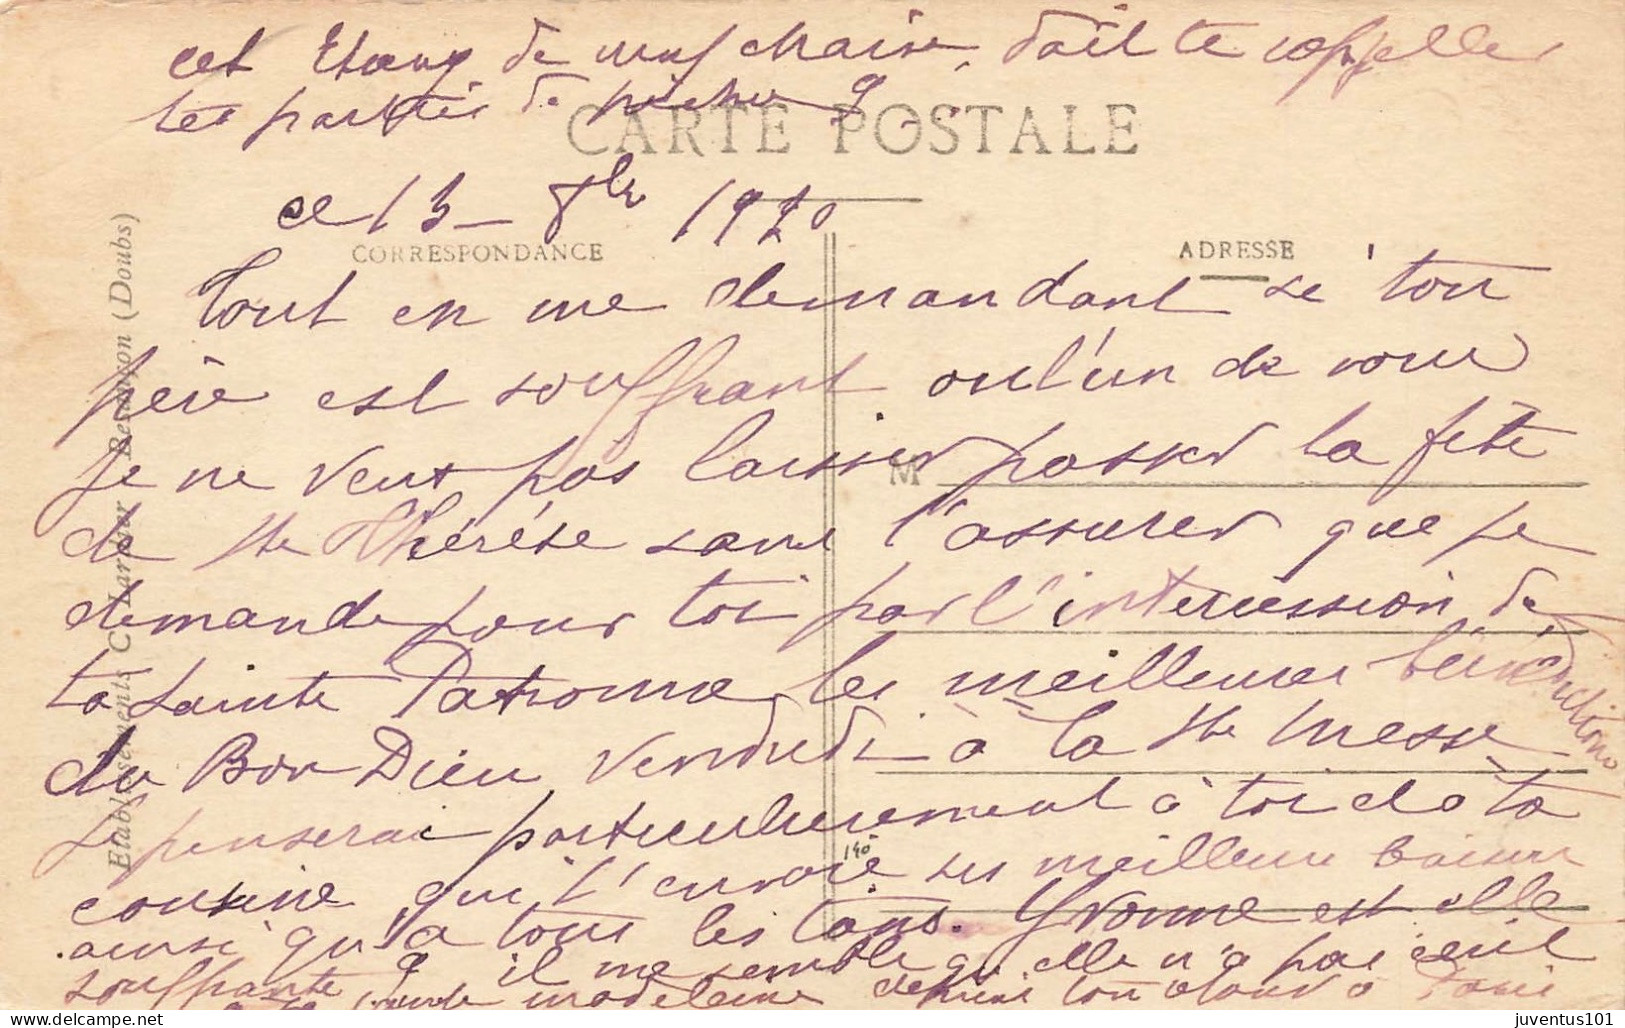 cet Etang de neuf chaise, doit te rappeller
tes parties de pêche ?
CARTE POSTALE
ce 13 - 8bre 1920
CORRESPONDANCE
ADRESSE
Tout en me demandant si ton
père est souffrant ou l'un de vous
je ne veux pas laisser passer la fête
M
de Ste Thérèse sans t'assurer que je
demande pour toi par l'intercession de
ta Sainte Patronne les meilleures bénédictions
du Bon Dieu Vendredi à la Ste Messe
je penserai particulièrement à toi de ta
cousine qui t'envoie ses meilleurs baisers
140
ainsi qu'à tous les tons. Yvonne est elle
souffrante ? il me semble qu'elle n'a pas écrit
tante madeleine depuis ton retour à Paris
Etablissements C. Lardier Besançon (Doubs)
juventus101